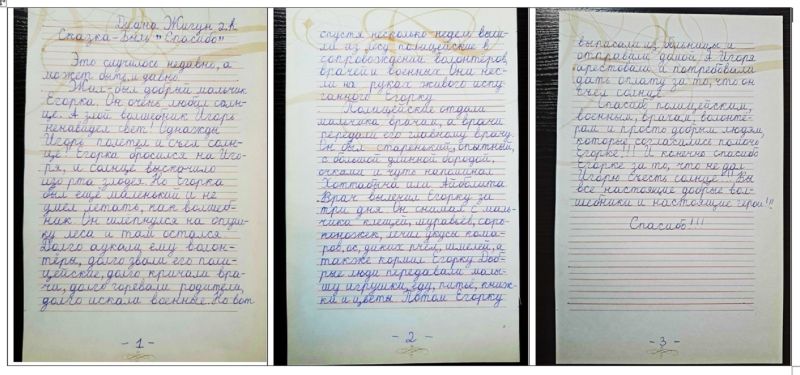 Диана Жигун 2А
Сказка-быль "Спасибо"
Это случилось недавно, а
может быть и давно.
Жил-был добрый мальчик
Егорка. Он очень любил солн-
це. А злой волшебник Игорь
ненавидел свет! Однажды
Игорь полетел и съел солн-
це! Егорка бросился на Иго-
ря, и солнце выскочило
изо рта злодея. Но Егорка
был ещё маленький и не
умел летать, как волшеб-
ник. Он шлёпнулся на опуш-
ку леса и там остался.
Долго аукали ему волон-
тёры, долго звали его поли-
цейские, долго кричали вра-
чи, долго горевали родители,
долго искали военные. Но вот
- 1 -
спустя несколько недель выш-
ли из лесу полицейские в
сопровождении волонтёров,
врачей и военных. Они нес-
ли на руках живого испу-
ганного Егорку.
Полицейские отдали
мальчика врачам, а врачи
передали его главному врачу.
Он был старенький, опытный,
с большой длинной бородой,
очками и чуть напоминал
Хоттабыча или Айболита.
Врач вылечил Егорку за
три дня. Он снимал с маль-
чика клещей, муравьёв, соро-
коножек, лечил укусы кома-
ров, ос, диких пчёл, шмелей, а
также кормил Егорку. Доб-
рые люди передавали малы-
шу игрушки, еду, питьё, книж-
ки и цветы. Потом Егорку
- 2 -
выписали из больницы и
отправили домой. А Игоря
арестовали и потребовали
дать оплату за то, что он
съел солнце.
Спасибо полицейским,
военным, врачам, волонтё-
рам и просто добрым людям,
которые согласились помочь
Егорке!!! И конечно спасибо
Егорке за то, что не дал
Игорю съесть солнце!!! Вы
все настоящие добрые вол-
шебники и настоящие герои!!!
Спасибо!!!
- 3 -